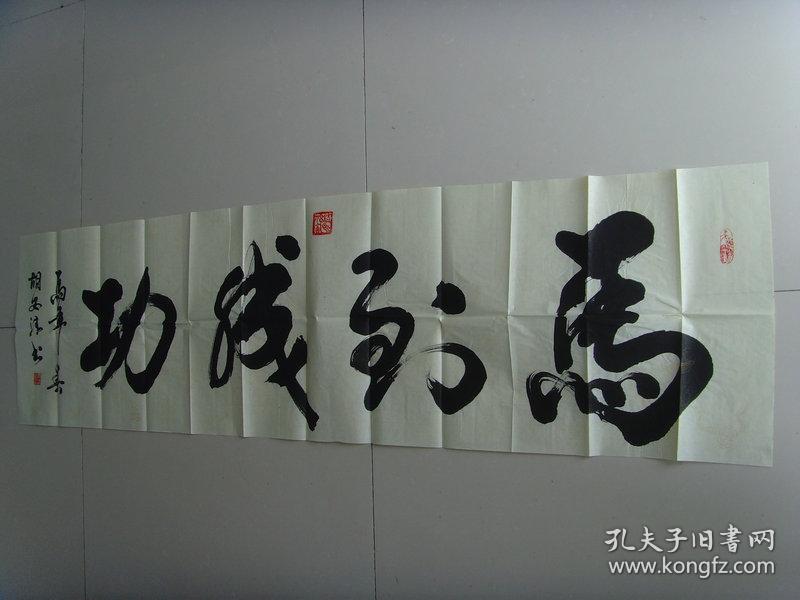 馬到成功
馬年春
胡安清书
孔夫子旧书网
www.kongfz.com